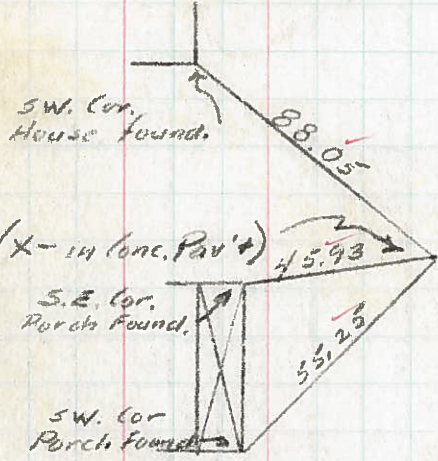 S.W. Cor.
House Found.
88.05
(X- in Conc. Pav't)
45.93
S.E. Cor.
Porch Found.
55.25
S.W. Cor
Porch Found